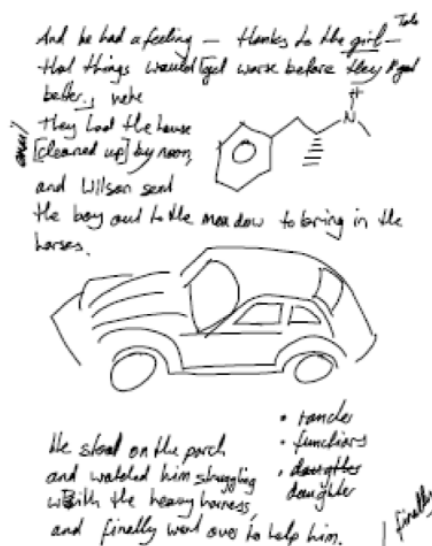 And he had a feeling — thanks to the girl —
that things would get worse before they got
better.
They had the house
[cleaned up] by noon,
and Wilson sent
the boy out to the meadow to bring in the
horses.
H
N
He stood on the porch
and watched him struggling
with the heavy harness,
and finally went over to help him.
• functions
• daughter
daughter
finally